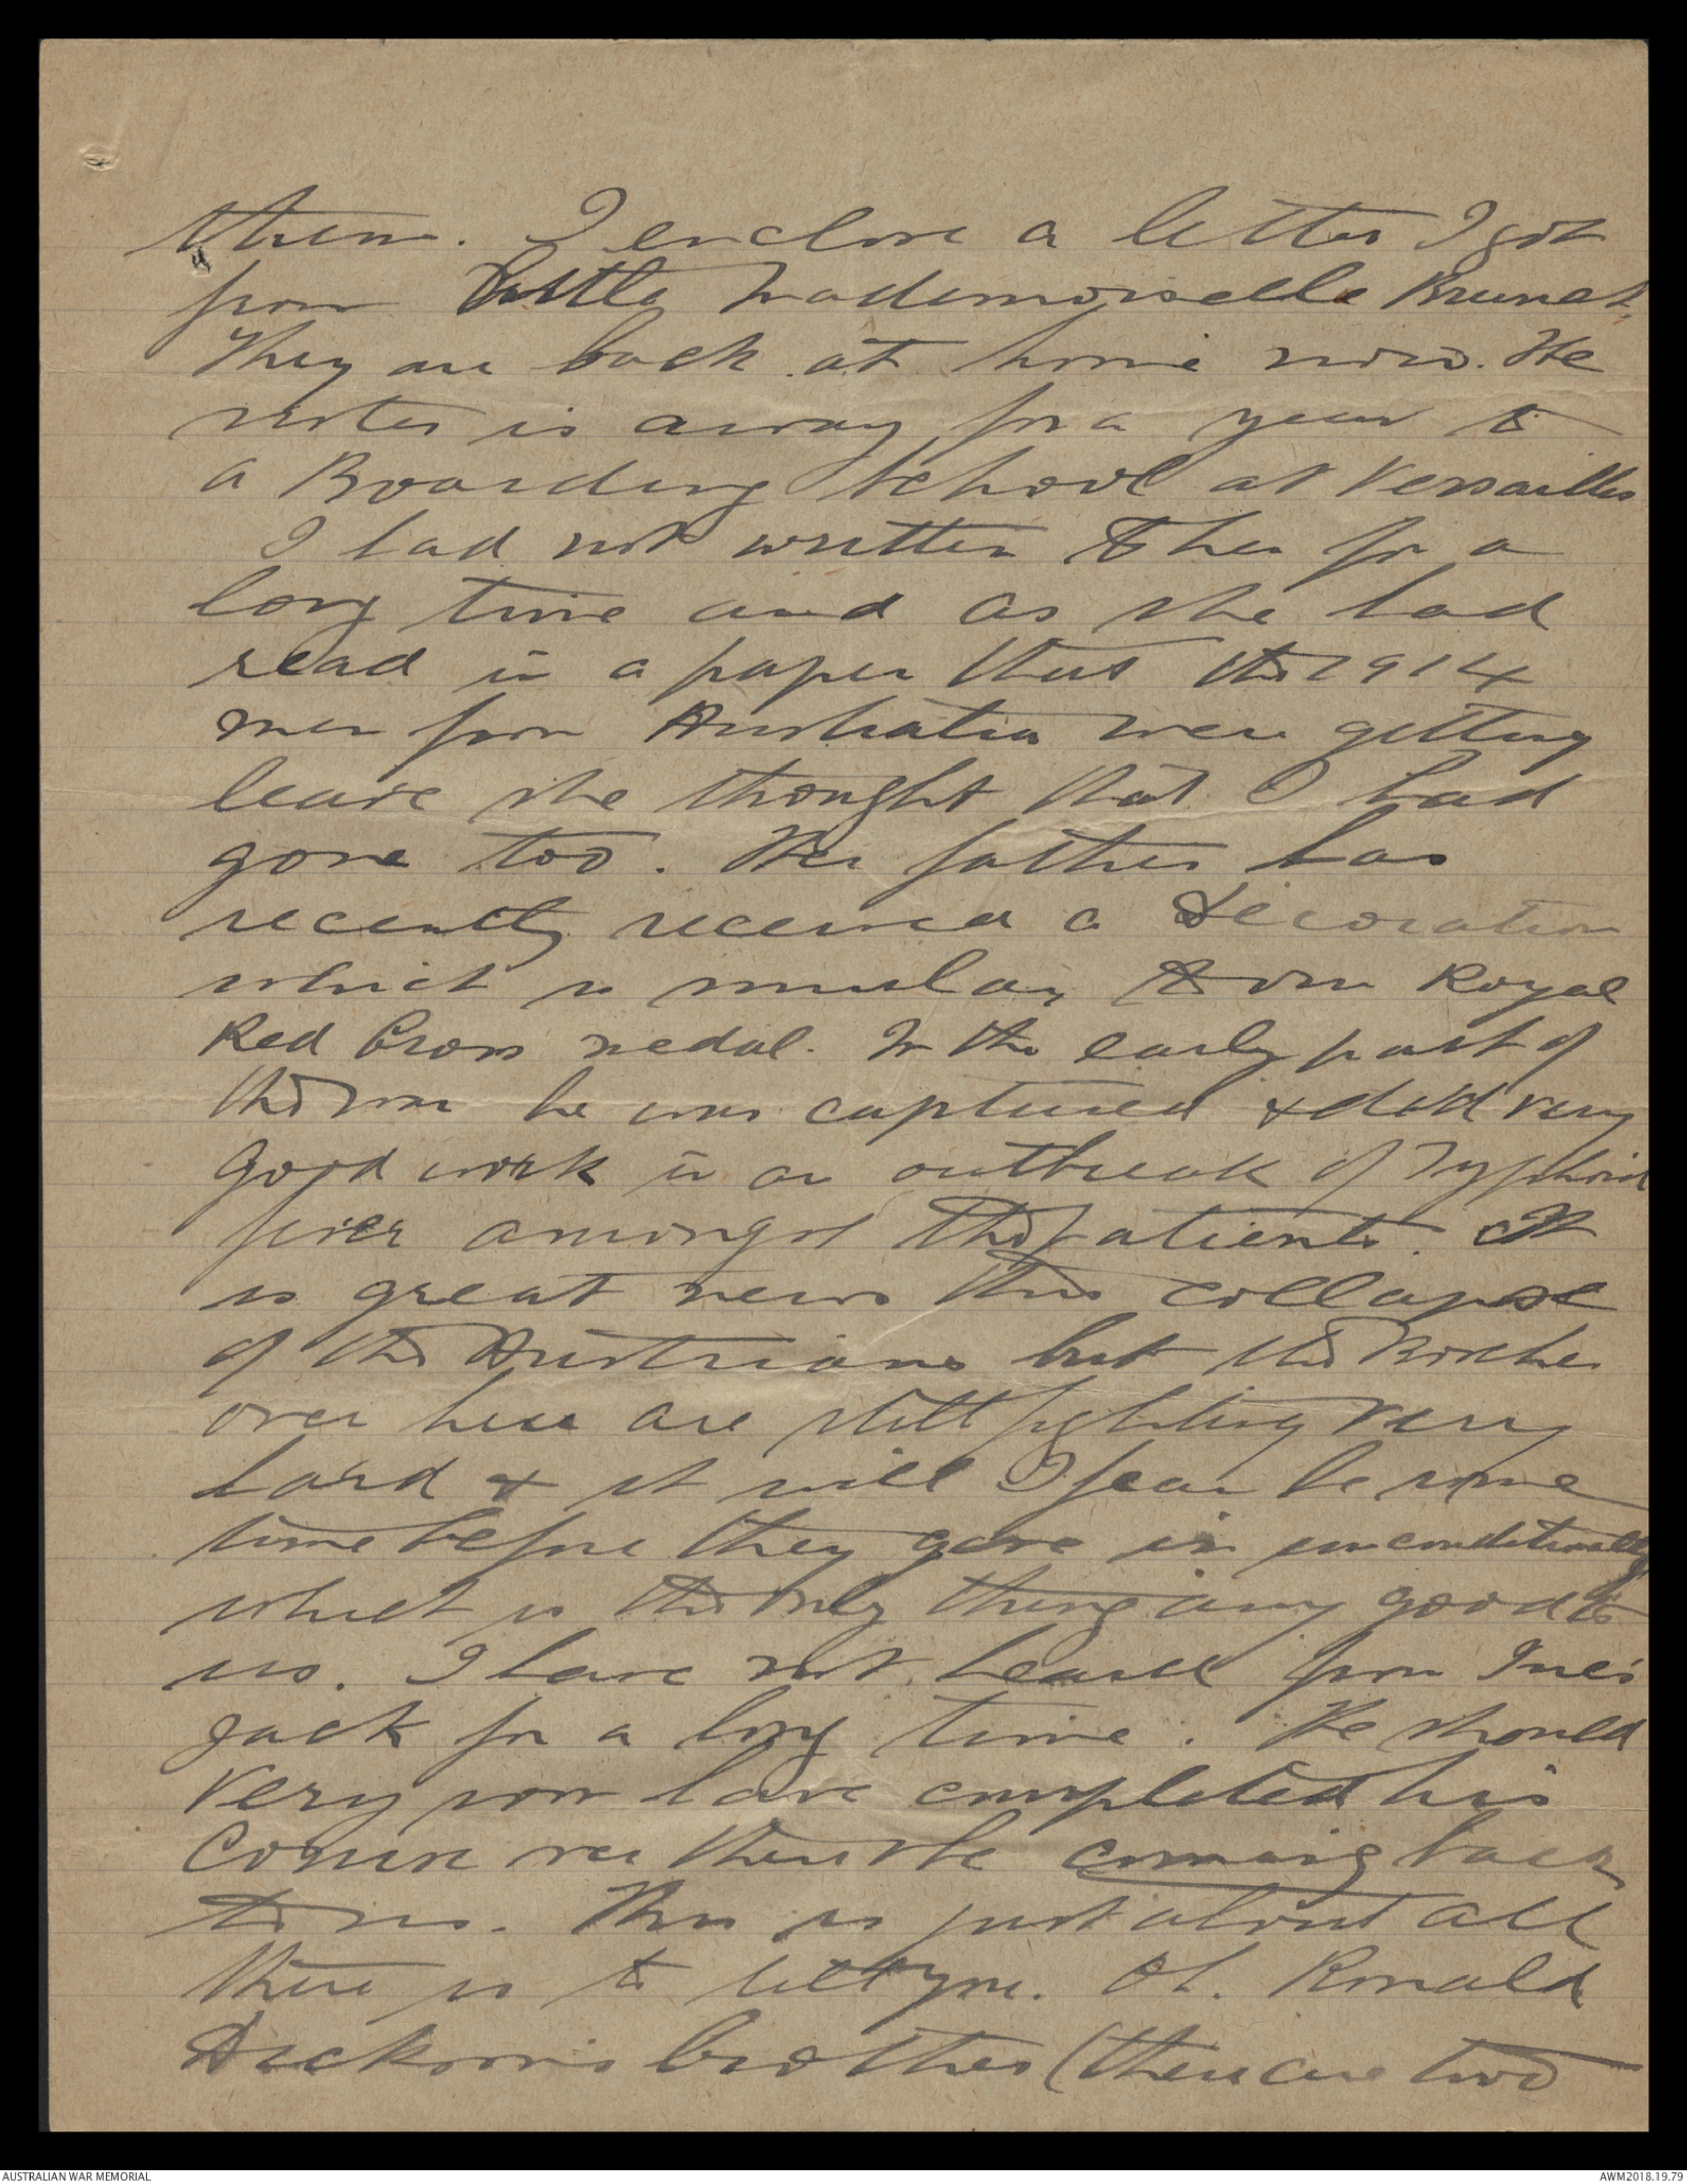 them. I enclose a letter I got
from little Mademoiselle Brunet,
They are back at home now. The
sister is away for a year to
a Boarding School at Versailles
I had not written to her for a
long time and as she had
read in a paper that the 1914
men from Australia were getting
leave she thought that I had
gone too. Her father has
recently received a decoration
which is similar to our Royal
Red Cross medal. In the early part of
the war he was captured & did very
good work in an outbreak of Typhoid
fever amongst the patients. It
is great news this collapse
of the Austrians but the Boches
over here are still fighting very
hard & it will I fear be some
time before they give in unconditionally
which is the only thing any good to
us. I have not heard from
Jack for a long time. He should
very soon have completed his
Course & then be coming back
to us. This is just about all
there is to tell you. Oh. Ronald
Dickson's brother (there are two
AUSTRALIAN WAR MEMORIAL
AWM2018.19.79